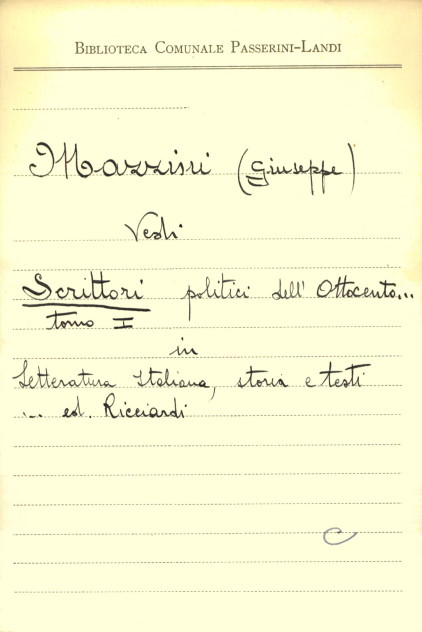 BIBLIOTECA COMUNALE PASSERINI-LANDI
Mazzini (Giuseppe)
Vedi
Scrittori politici dell' Ottocento...
tomo I
in
Letteratura Italiana, storia e testi
... ed. Ricciardi
C